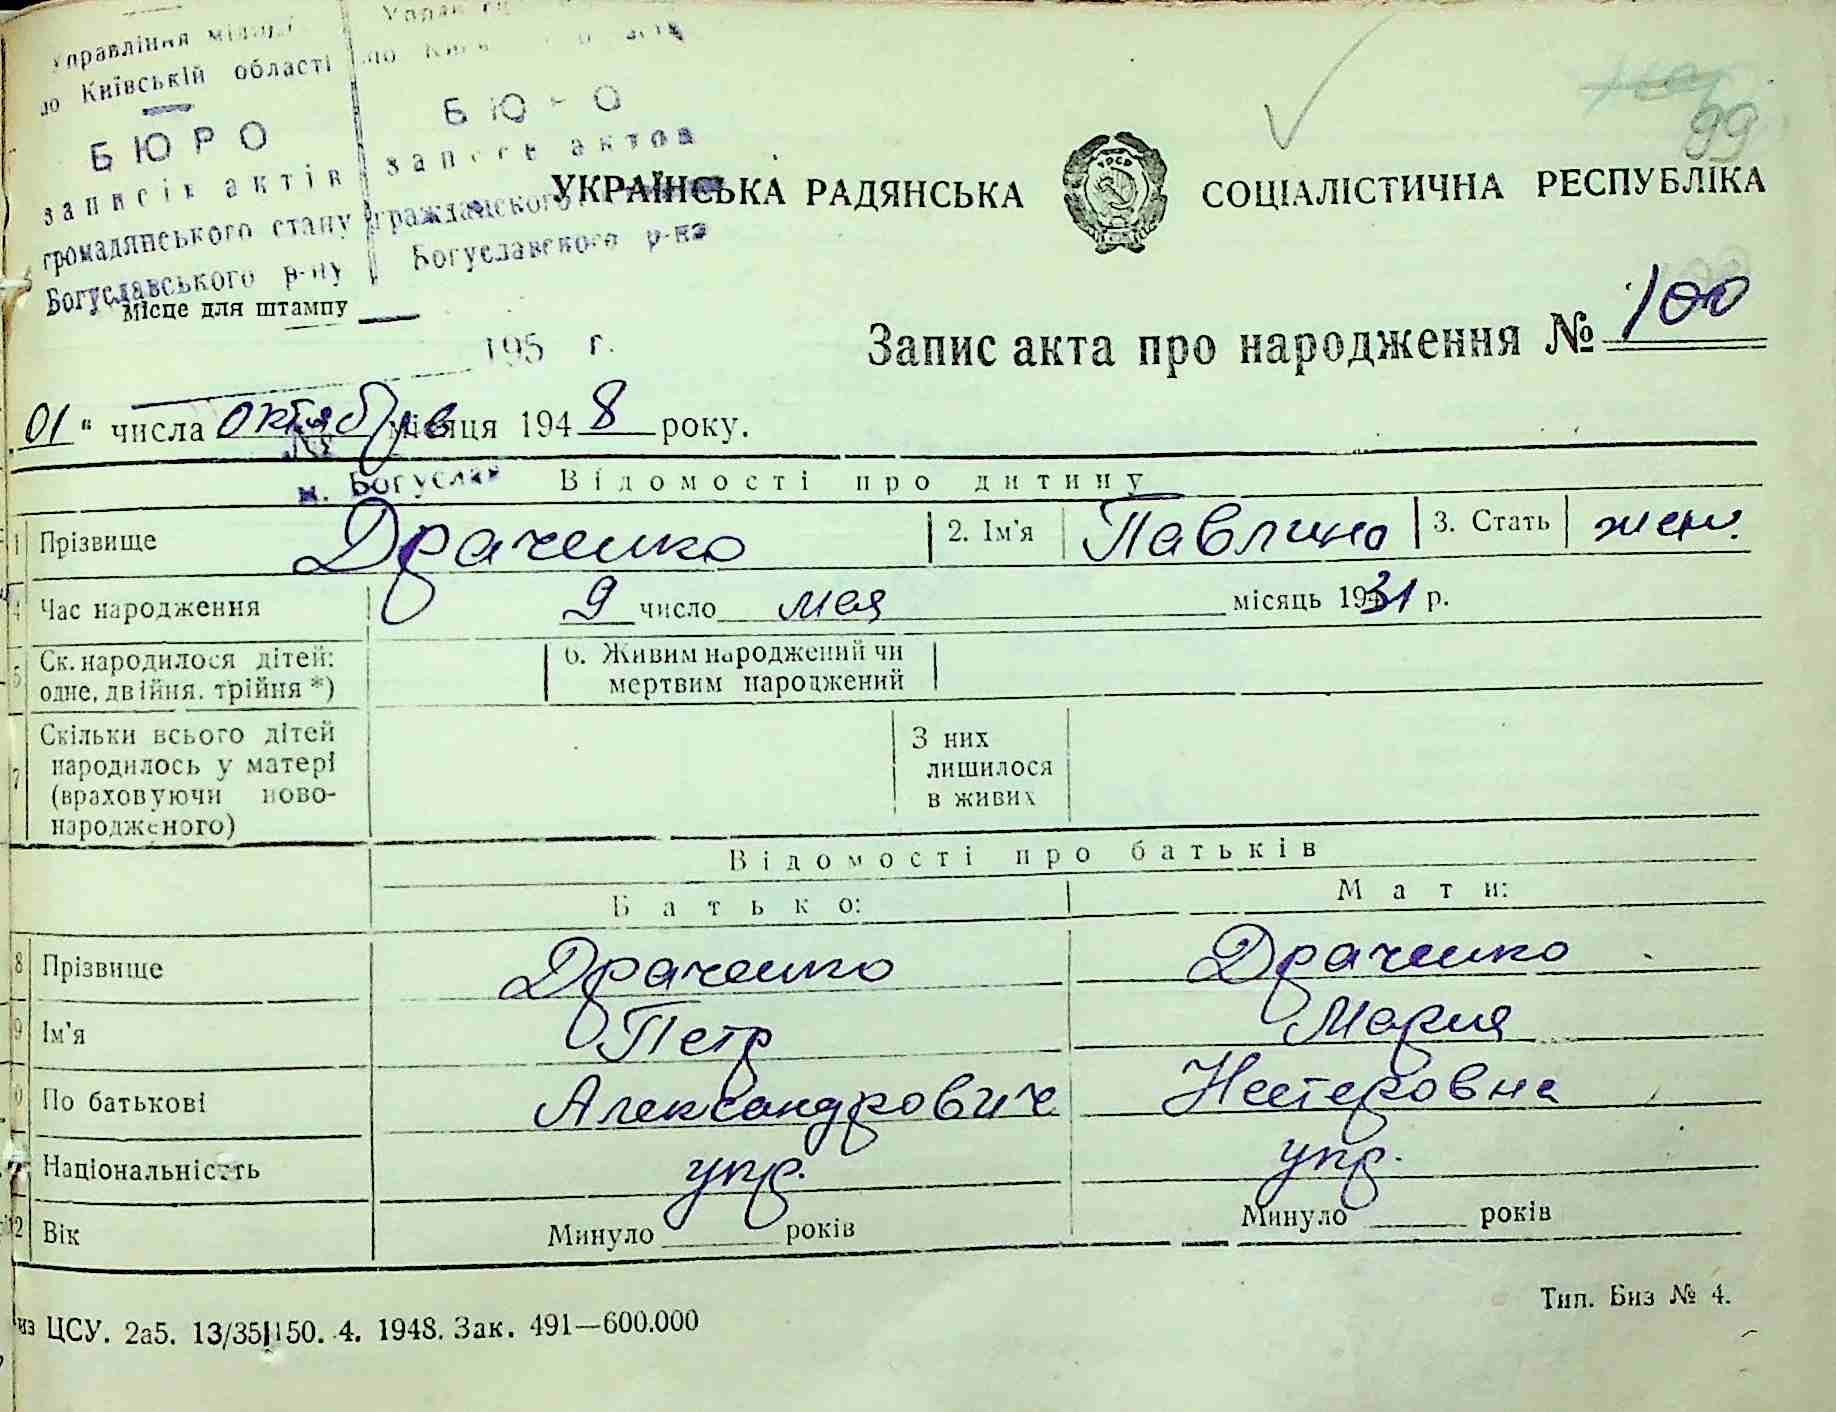 Управління міліції
по Київській області
БЮРО
записів актів
громадянського стану
Богуславського р-ну
БЮРО
записи актов
гражданского
Богуславского р-на
Місце для штампу
195 г.
м. Богуслав
99
УКРАЇНСЬКА РАДЯНСЬКА СОЦІАЛІСТИЧНА РЕСПУБЛІКА
Запис акта про народження № 100
01 " числа октября місяця 1948 року.
Відомості про дитину
1 Прізвище Драченко 2. Ім'я Павлина 3. Стать жен.
4 Час народження 9 число мая місяць 1931 р.
5 Ск. народилося дітей: одне, двійня, трійня *)
6. Живим народжений чи мертвим народжений
7 Скільки всього дітей
народилось у матері
(враховуючи ново-
народженого)
З них
лишилося
в живих
Відомості про батьків
Батько: Мати:
8 Прізвище Драченко Драченко
9 Ім'я Петр Мария
0 По батькові Александрович Нестеровна
Національність укр. укр.
12 Вік Минуло років Минуло років
из ЦСУ. 2а5. 13/35 150. 4. 1948. Зак. 491—600.000
Тип. Биз № 4.